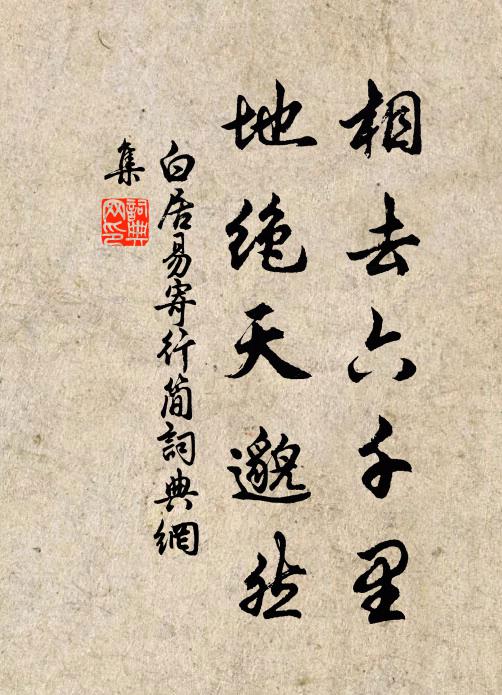 相去六千里
地绝天邈然
白居易寄行简詞典網
集
詞典
网印